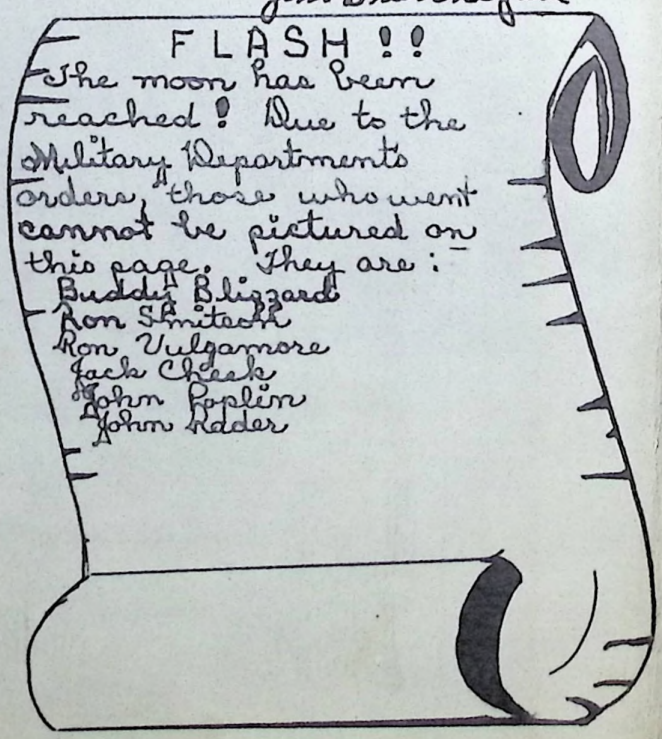 FLASH!!
The moon has been
reached! Due to the
Military Department's
orders, those who went
cannot be pictured on
this page. They are:
Buddy Blizzard
Ron
Ron Vulgamore
Jack Cheek
John Poplin
John Rader